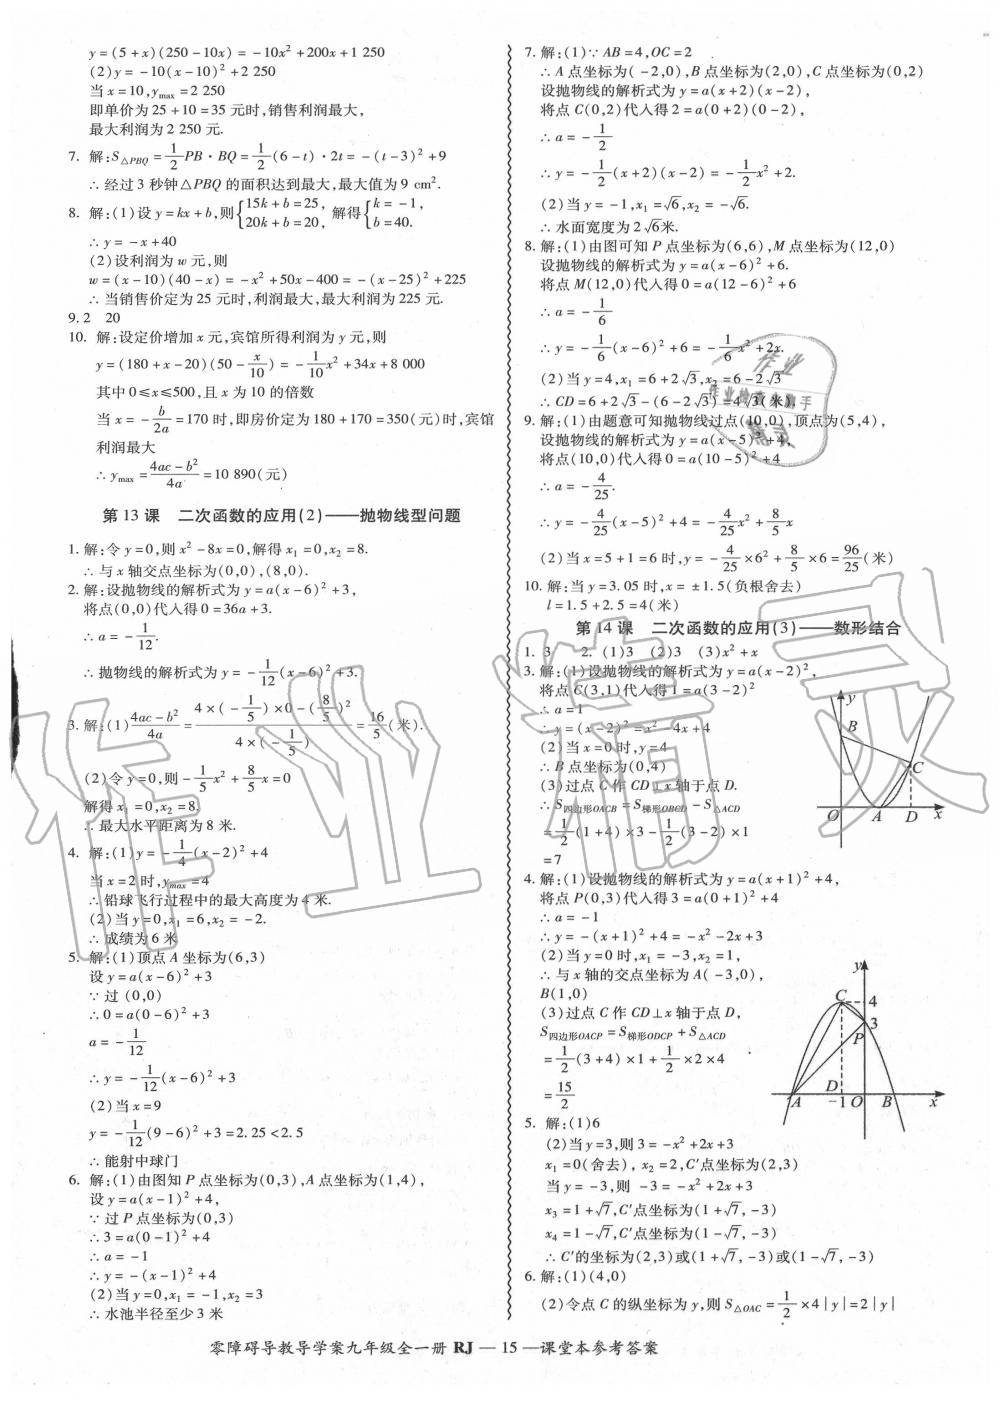 y=(5+x)(250-10x)=-10x²+200x+1 250
(2)y=-10(x-10)²+2 250
当x=10,y_max=2 250
即单价为25+10=35元时,销售利润最大,
最大利润为2 250元.
7. 解:S△PBQ=1/2PB·BQ=1/2(6-t)·2t=-(t-3)²+9
∴经过3秒钟△PBQ的面积达到最大,最大值为9 cm².
8. 解:(1)设y=kx+b,则{15k+b=25, 20k+b=20, 解得{k=-1, b=40.
∴y=-x+40
(2)设利润为w元,则
w=(x-10)(40-x)=-x²+50x-400=-(x-25)²+225
∴当销售价定为25元时,利润最大,最大利润为225元.
9.2 20
10. 解:设定价增加x元,宾馆所得利润为y元,则
y=(180+x-20)(50-x/10)=-1/10x²+34x+8 000
其中0≤x≤500,且x为10的倍数
当x=-b/2a=170时,即房价定为180+170=350(元)时,宾馆
利润最大
∴y_max=(4ac-b²)/4a=10 890(元)
第13课 二次函数的应用(2)——抛物线型问题
1. 解:令y=0,则x²-8x=0,解得x₁=0,x₂=8.
∴与x轴交点坐标为(0,0),(8,0).
2. 解:设抛物线的解析式为y=a(x-6)²+3,
将点(0,0)代入得0=36a+3.
∴a=-1/12.
∴抛物线的解析式为y=-1/12(x-6)²+3.
3. 解:(1)(4ac-b²)/4a=(4×(-1/5)×0-(8/5)²)/(4×(-1/5))=16/5(米).
(2)令y=0,则-1/5x²+8/5x=0
解得x₁=0,x₂=8.
∴最大水平距离为8米.
4. 解:(1)y=-1/4(x-2)²+4
当x=2时,y_max=4
∴铅球飞行过程中的最大高度为4米.
(2)当y=0,x₁=6,x₂=-2.
∴成绩为6米
5. 解:(1)顶点A坐标为(6,3)
设y=a(x-6)²+3
∵过(0,0)
∴0=a(0-6)²+3
a=-1/12
∴y=-1/12(x-6)²+3
(2)当x=9
y=-1/12(9-6)²+3=2.25<2.5
∴能射中球门
6. 解:(1)由图知P点坐标为(0,3),A点坐标为(1,4),
设y=a(x-1)²+4,
∵过P点坐标为(0,3)
∴3=a(0-1)²+4
∴a=-1
∴y=-(x-1)²+4
(2)当y=0,x₁=-1,x₂=3
∴水池半径至少3米
7. 解:(1)∵AB=4,OC=2
∴A点坐标为(-2,0),B点坐标为(2,0),C点坐标为(0,2)
设抛物线的解析式为y=a(x+2)(x-2),
将点C(0,2)代入得2=a(0+2)(0-2),
∴a=-1/2
∴y=-1/2(x+2)(x-2)=-1/2x²+2.
(2)当y=-1,x₁=√6,x₂=-√6.
∴水面宽度为2√6米.
8. 解:(1)由图可知P点坐标为(6,6),M点坐标为(12,0)
设抛物线的解析式为y=a(x-6)²+6.
将点M(12,0)代入得0=a(12-6)²+6
∴a=-1/6
∴y=-1/6(x-6)²+6=-1/6x²+2x.
(2)当y=4,x₁=6+2√3,x₂=6-2√3
∴CD=6+2√3-(6-2√3)=4√3(米)
9. 解:(1)由题意可知抛物线过点(10,0),顶点为(5,4),
设抛物线的解析式为y=a(x-5)²+4,
将点(10,0)代入得0=a(10-5)²+4
∴a=-4/25.
∴y=-4/25(x-5)²+4=-4/25x²+8/5x
(2)当x=5+1=6时,y=-4/25×6²+8/5×6=96/25(米)
10. 解:当y=3.05时,x=±1.5(负根舍去)
l=1.5+2.5=4(米)
第14课 二次函数的应用(3)——数形结合
1. 3 2. (1)3 (2)3 (3)x²+x
3. 解:(1)设抛物线的解析式为y=a(x-2)²,
将点C(3,1)代入得1=a(3-2)²
∴a=1
∴y=(x-2)²=x²-4x+4
(2)当x=0时,y=4
∴B点坐标为(0,4)
(3)过点C作CD⊥x轴于点D.
∴S四边形OACB=S梯形OBCD-S△ACD
=1/2(1+4)×3-1/2(3-2)×1
=7
y
B
C
O A D x
4. 解:(1)设抛物线的解析式为y=a(x+1)²+4,
将点P(0,3)代入得3=a(0+1)²+4
∴a=-1
∴y=-(x+1)²+4=-x²-2x+3
(2)当y=0时,x₁=-3,x₂=1,
∴与x轴的交点坐标为A(-3,0),
B(1,0)
(3)过点C作CD⊥x轴于点D,
S四边形OACP=S梯形ODCP+S△ACD
=1/2(3+4)×1+1/2×2×4
=15/2
y
C 4
3
P
D
A -1 O B x
5. 解:(1)6
(2)当y=3,则3=-x²+2x+3
x₁=0(舍去),x₂=2,C′点坐标为(2,3)
当y=-3,则 -3=-x²+2x+3
x₃=1+√7,C′点坐标为(1+√7,-3)
x₄=1-√7,C′点坐标为(1-√7,-3)
∴C′的坐标为(2,3)或(1+√7,-3)或(1-√7,-3)
6. 解:(1)(4,0)
(2)令点C的纵坐标为y,则S△OAC=1/2×4|y|=2|y|
零障碍导教导学案九年级全一册 RJ — 15 —课堂本参考答案
作业精灵